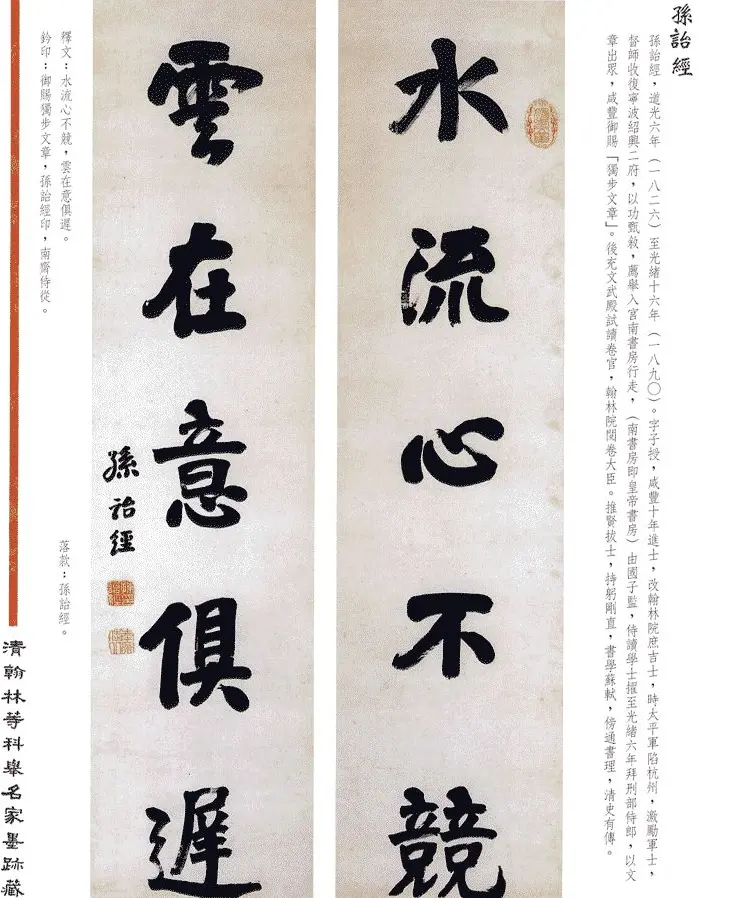 孫詒經
孫詒經，道光六年（一八二六）至光緒十六年（一八九〇）。字子授，咸豐十年進士，改翰林院庶吉士，時太平軍陷杭州，激勵軍士，
督師收復寧波紹興二府，以功甄敘，薦舉入宮南書房行走，（南書房即皇帝書房）由國子監，侍讀學士擢至光緒六年拜刑部侍郎，以文
章出眾，咸豐御賜「獨步文章」。後充文武殿試讀卷官，翰林院閱卷大臣。推賢拔士，持躬剛直，書學蘇軾，傍通書理，清史有傳。
水流心不競
雲在意俱遲
孫詒經
釋文：水流心不競，雲在意俱遲。
落款：孫詒經。
鈐印：御賜獨步文章，孫詒經印，南齋侍從。
清翰林等科舉名家墨跡藏